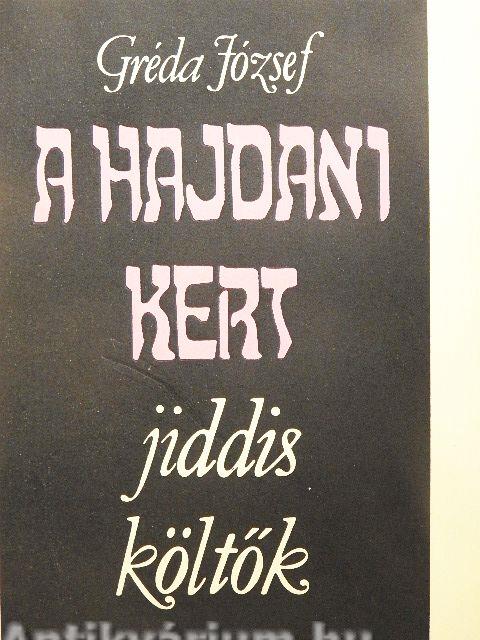 Gréda József
A HAJDANI
KERT
jiddis
költők
Antikvárium.hu